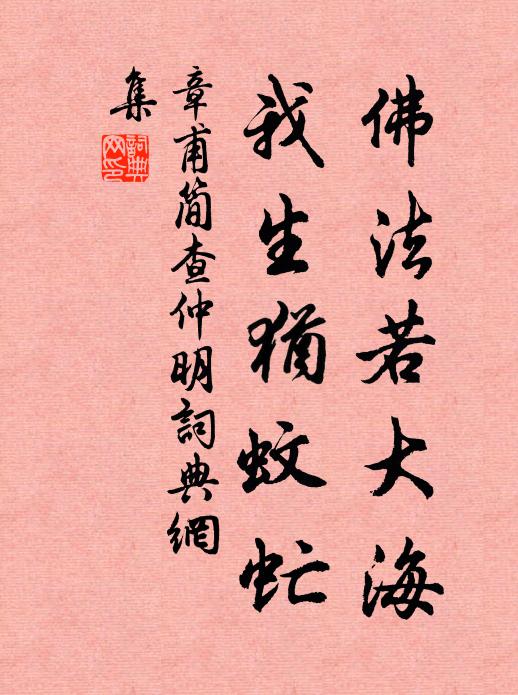 佛法若大海
我生猶蚊虻
章甫简查仲明詞典網
集
詞典網印